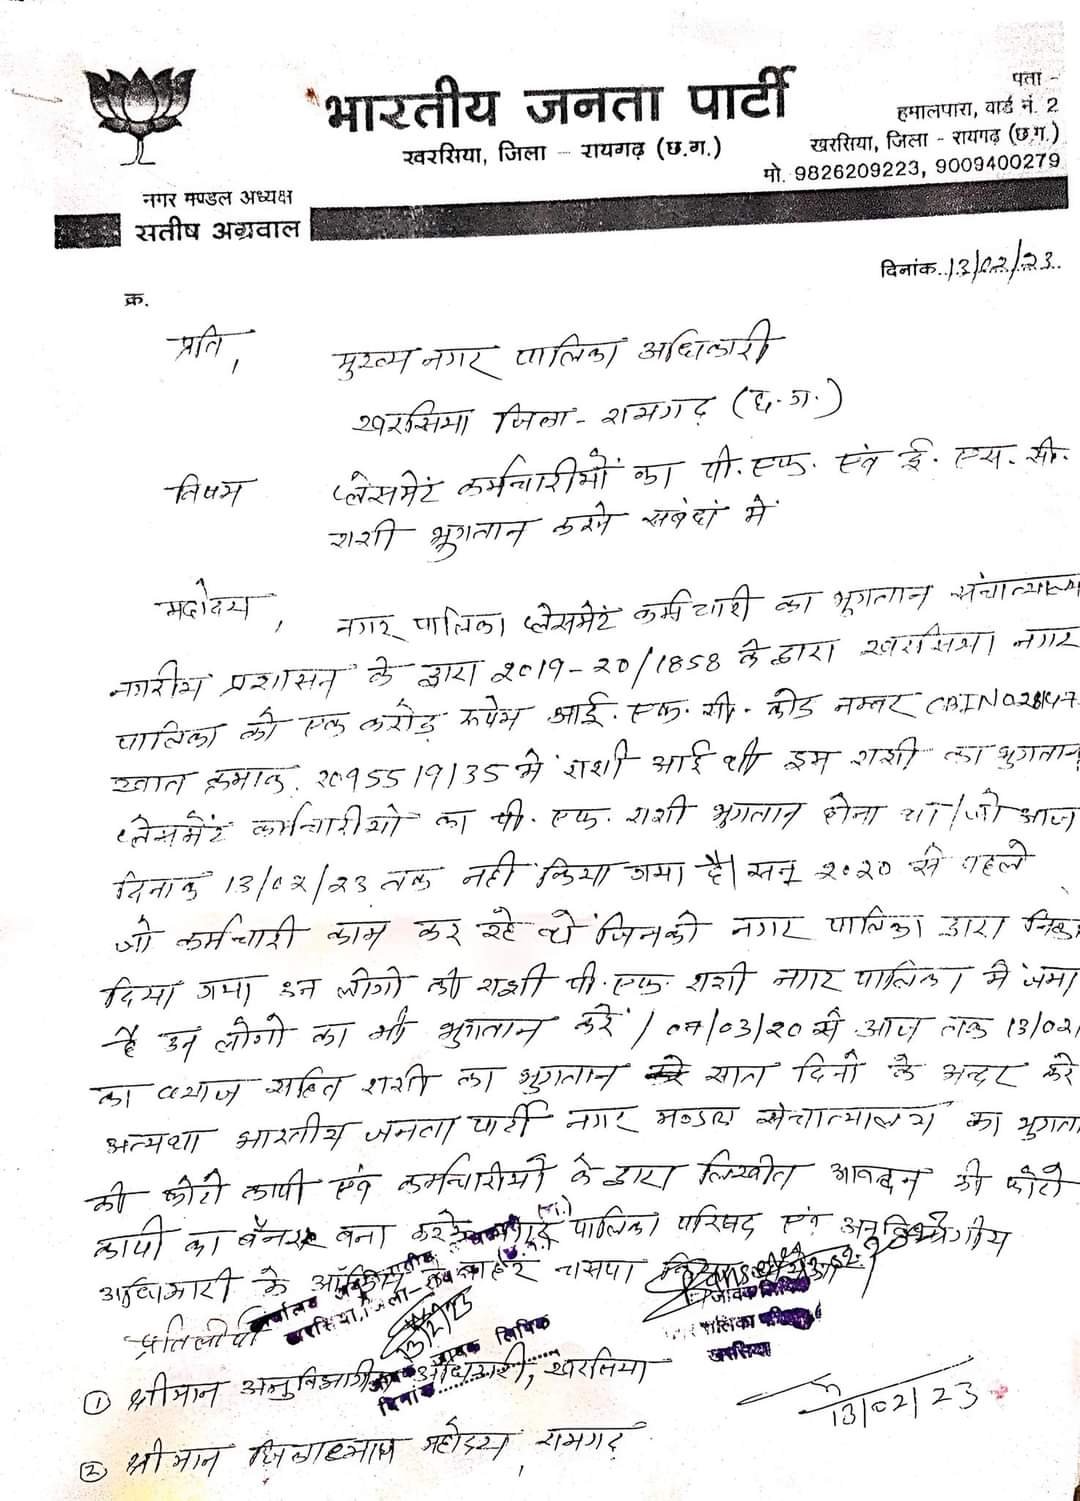 भारतीय जनता पार्टी
खरसिया, जिला - रायगढ़ (छ.ग.)
पता -
हमालपारा, वार्ड नं. 2
खरसिया, जिला - रायगढ़ (छ.ग.)
मो. 9826209223, 9009400279
नगर मण्डल अध्यक्ष
सतीष अग्रवाल
दिनांक. 13/02/23
क्र.
प्रति,
मुख्य नगर पालिका अधिकारी
खरसिया जिला - रायगढ़ (छ.ग.)
विषय प्लेसमेंट कर्मचारीयों का पी.एफ. एवं ई.एस.सी.
राशी भुगतान करने संबंदां में
महोदय, नगर पालिका प्लेसमेंट कर्मचारी का भुगतान संचात्यालय
नगरीय प्रशासन के द्वारा 2019-20/1858 के द्वारा खरसिया नगर
पालिका को एक करोड़ रूपेय आई.एफ.सी. कोड नम्बर
खात क्रमांक. 2095519135 में राशी आई थी इस राशी का भुगतान
प्लेसमेंट कर्मचारीयो का पी.एफ. राशी भुगतान होना था/जो आज
दिनांक 13/02/23 तक नही किया गया है। सन् 2020 से पहले
जो कर्मचारी काम कर रहे थे जिनको नगर पालिका द्वारा
दिया गया उन लोगो की राशी पी.एफ. राशी नगर पालिका में जमा
है उन लोगो का भी भुगतान करें / 07/03/20 से आज तक 13/02/
का ब्याज सहित राशी का भुगतान सात दिनो के अन्दर करे
अन्यथा भारतीय जनता पार्टी नगर मण्डल संचात्यालय का भुगता
की फोटो कापी एवं कर्मचारीयों के द्वारा लिखीत आवेदन की फोटो
कापी का बैनर बना कर नगर पालिका परिषद एवं अनुविभागीय
अधिकारी के ऑफिस के बाहर चस्पा
प्रतिलीपी
① श्रीमान अनुविभागीय अधिकारी, खरसिया
② श्रीमान जिलाध्यक्ष महोदय, रायगढ़
आवक लिपिक
दिनांक
पालिका
खरसिया
13/02/23